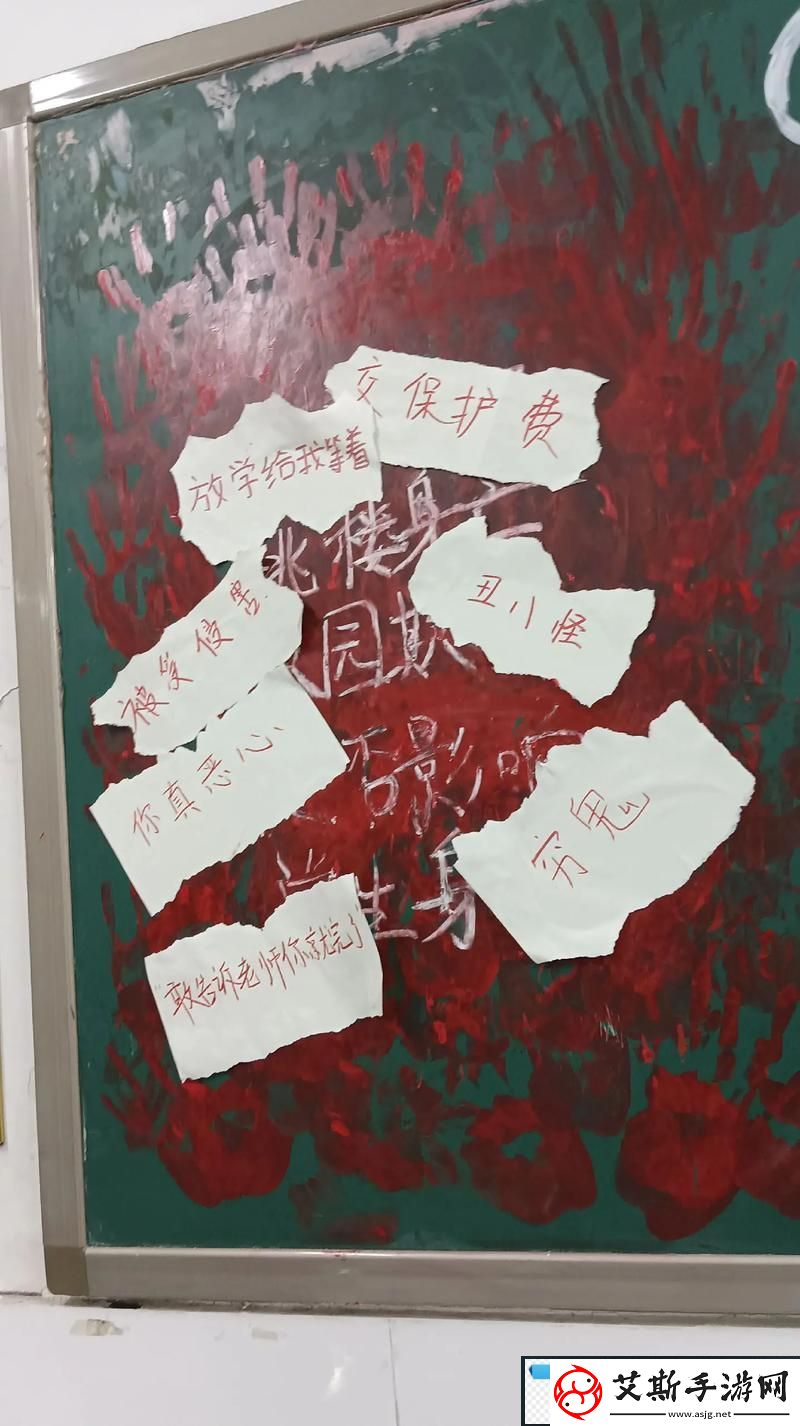 交保护费
放学给我等着
跳楼身亡
丑八怪
被受侵害
园欺
你真恶心
否影响
穷鬼
生身
敢告诉老师你就完了
艾斯手游网
www.asjg.net